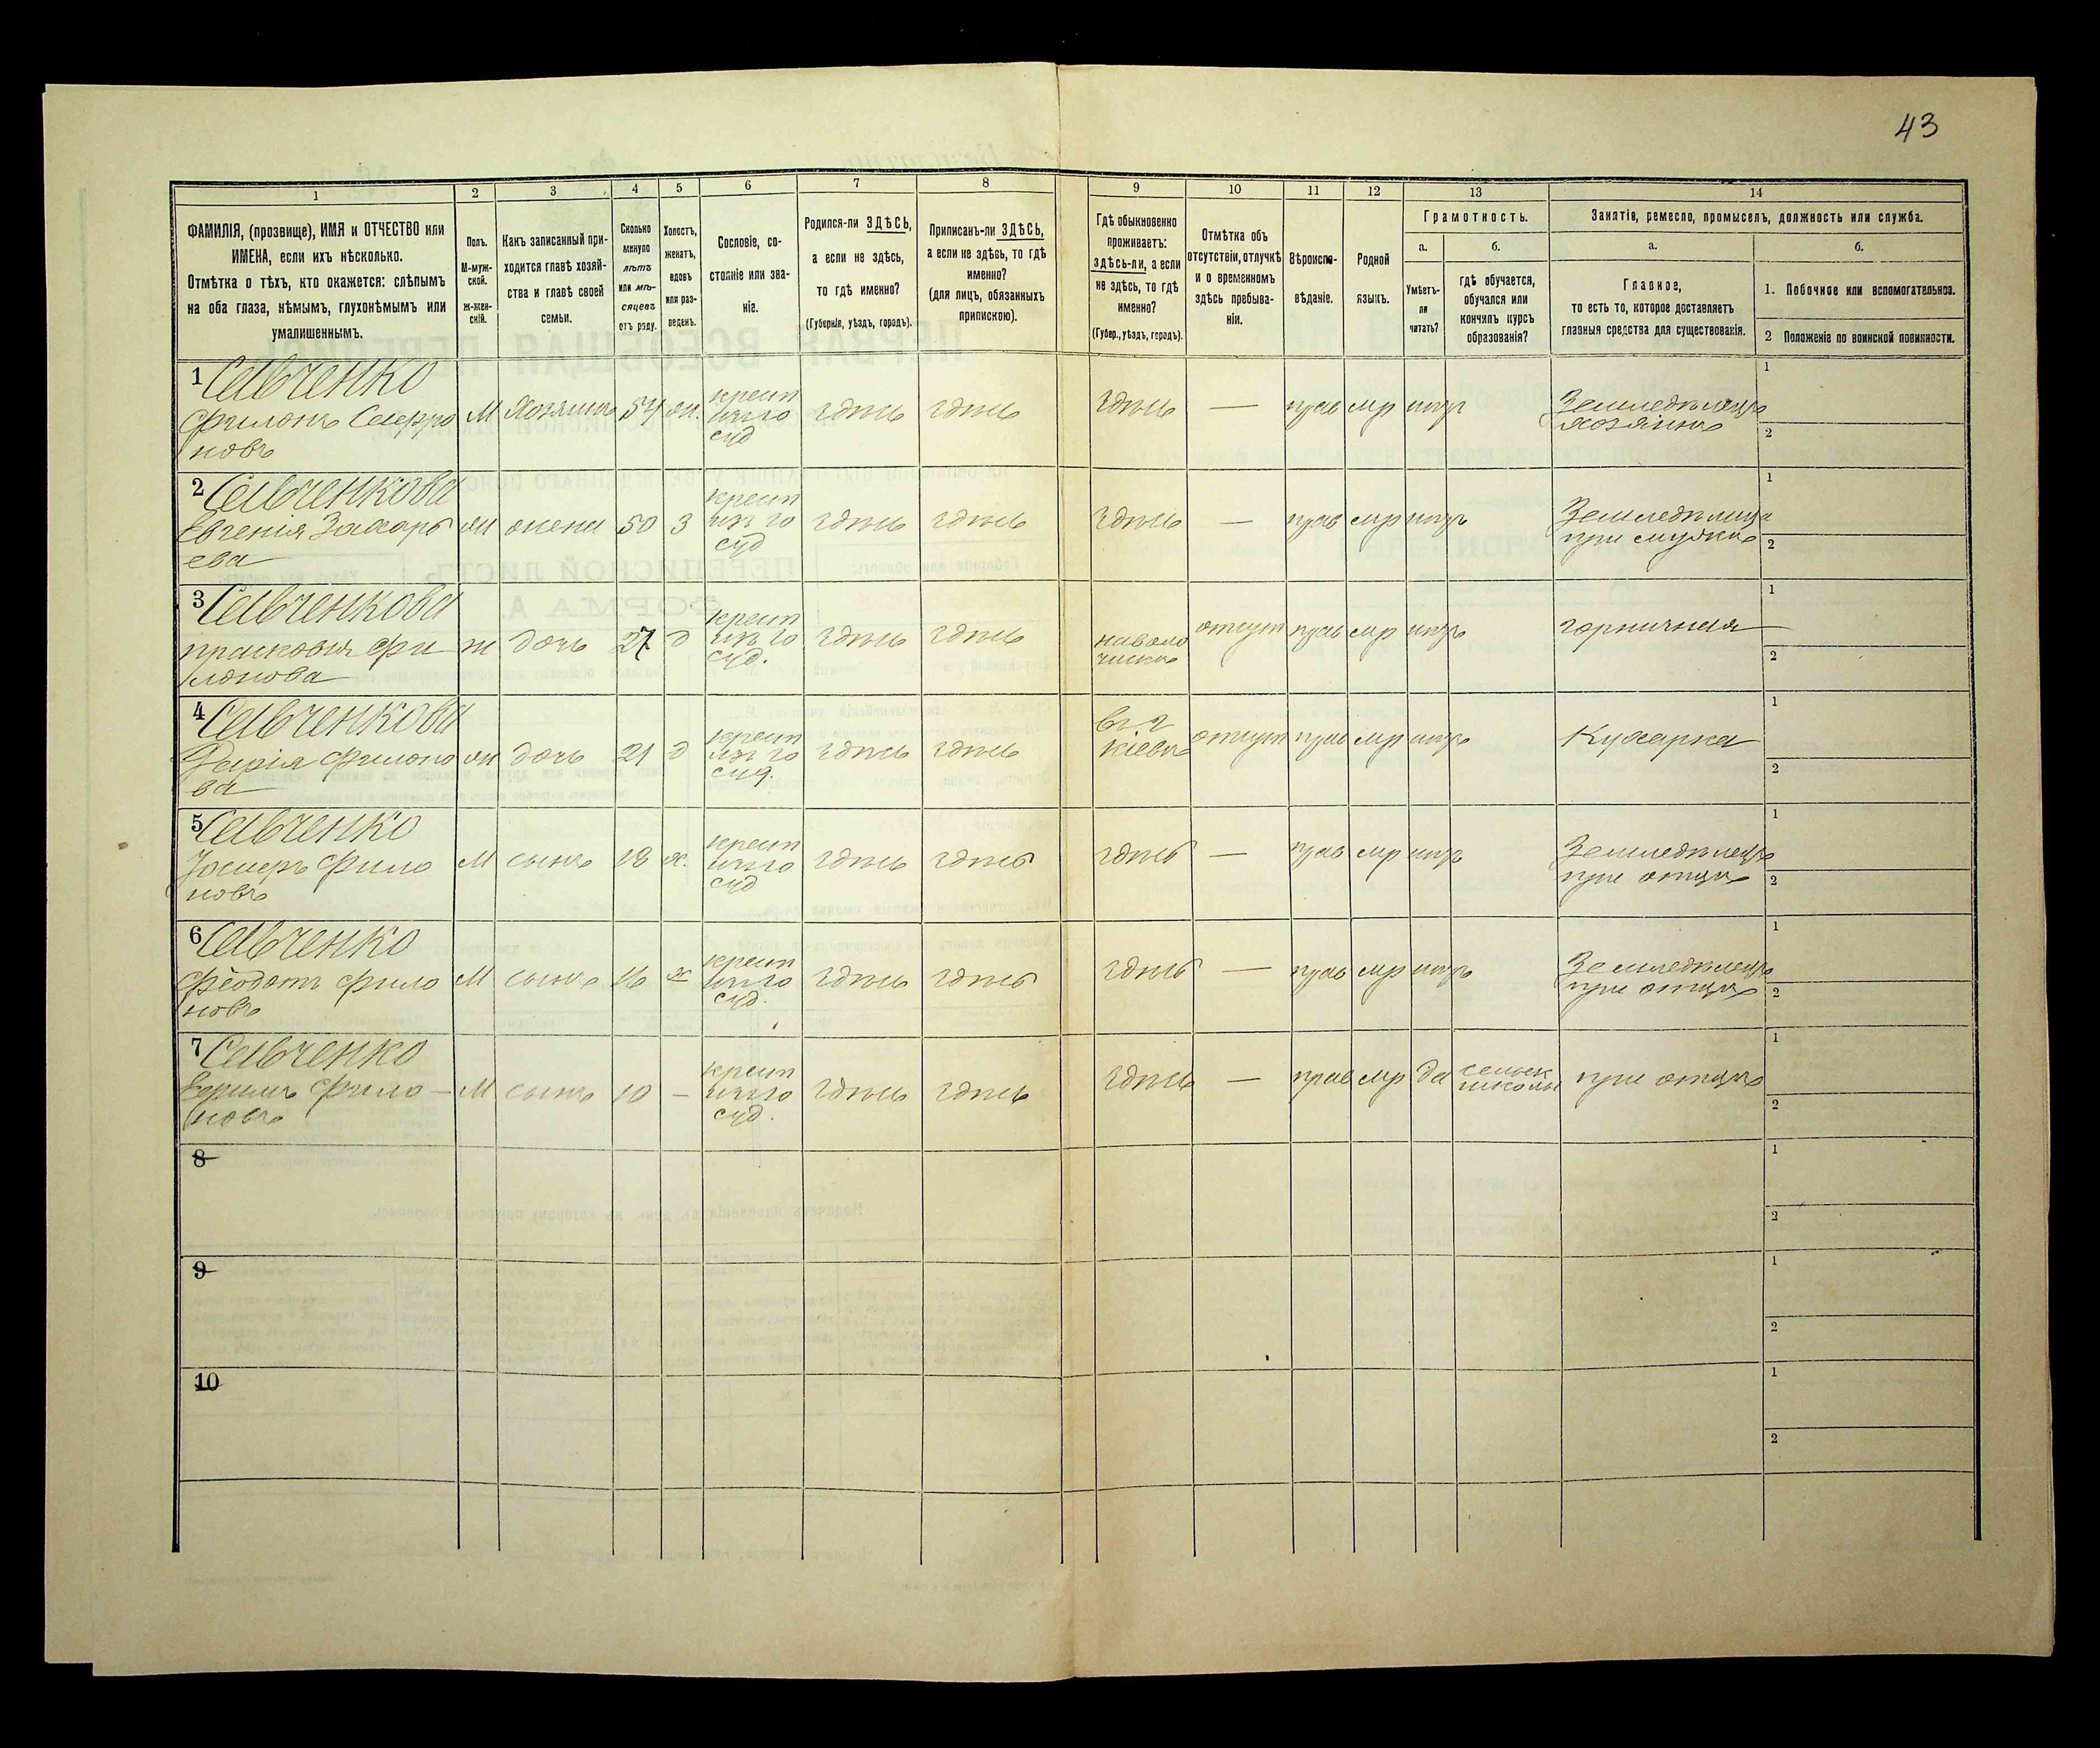 43
1 2 3 4 5 6 7 8 9 10 11 12 13 14
ФАМИЛІЯ, (прозвище), ИМЯ и ОТЧЕСТВО или
ИМЕНА, если ихъ нѣсколько.
Отмѣтка о тѣхъ, кто окажется: слѣпымъ
на оба глаза, нѣмымъ, глухонѣмымъ или
умалишеннымъ.
Полъ.
М-муж-
ской.
Ж-жен-
скій.
Какъ записанный при-
ходится главѣ хозяй-
ства и главѣ своей
семьи.
Сколько
минуло
лѣтъ
или мѣ-
сяцевъ
отъ роду.
Холостъ,
женатъ,
вдовъ
или раз-
веденъ.
Сословіе, со-
стояніе или зва-
ніе.
Родился-ли ЗДѢСЬ,
а если не здѣсь,
то гдѣ именно?
(Губернія, уѣздъ, городъ).
Приписанъ-ли ЗДѢСЬ,
а если не здѣсь, то гдѣ
именно?
(для лицъ, обязанныхъ
припискою).
Гдѣ обыкновенно
проживаетъ:
здѣсь-ли, а если
не здѣсь, то гдѣ
именно?
(Губер., уѣздъ, городъ).
Отмѣтка объ
отсутствіи, отлучкѣ
и о временномъ
здѣсь пребыва-
ніи.
Вѣроиспо-
вѣданіе.
Родной
языкъ.
Грамотность.
а.
Умѣетъ-
ли
читать?
б.
гдѣ обучается,
обучался или
кончилъ курсъ
образованія?
Занятіе, ремесло, промыселъ, должность или служба.
а.
Главное,
то есть то, которое доставляетъ
главныя средства для существованія.
б.
1. Побочное или вспомогательное.
2 Положеніе по воинской повинности.
1 Савченко
Филонъ
новъ
М Хозяинъ 54 жн. крест
суд
здѣсь здѣсь здѣсь — прав мр нѣтъ
Земледѣлецъ
хозяинъ
1
2
2 Савченкова
Евгенія Захарь
ева
жн жена 50 З крест
суд
здѣсь здѣсь здѣсь — прав мр нѣтъ
Земледѣлица
при мужѣ
1
2
3 Савченкова
прасковія Фи
лонова
ж дочь 27 д крест
суд.
здѣсь здѣсь
отсут прав мр нѣтъ
горничная
1
2
4 Савченкова
Дарія Филоно
ва
жн дочь 21 д крест
суд.
здѣсь здѣсь въ г
Кіевѣ
отсут прав мр нѣтъ
Кухарка
1
2
5 Савченко
Іосифъ Фило
новъ
М сынъ 18 х. крест
суд
здѣсь здѣсь здѣсь — прав мр нѣтъ
Земледѣлецъ
при отцѣ
1
2
6 Савченко
Феодотъ Фило
новъ
М сынъ 16 х крест
суд.
здѣсь здѣсь здѣсь — прав мр нѣтъ
Земледѣлецъ
при отцѣ
1
2
7 Савченко
Ефимъ Фило —
новъ
М сынъ 10 — крест
суд.
здѣсь здѣсь здѣсь — прав мр да
сельск
школы
при отцѣ
1
2
8
1
2
9
1
2
10
1
2